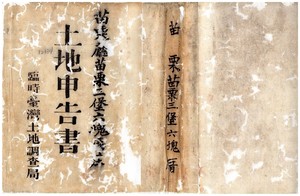 苗栗三堡六塊厝
苗栗廳苗栗二堡六塊厝庄
土地申告書
臨時臺灣土地調查局